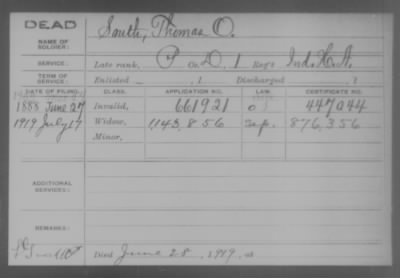 DEAD
NAME OF SOLDIER: South, Thomas O.
SERVICE: Late rank, P Co. D, 1 Reg't Ind. H. A.
TERM OF SERVICE: Enlisted , 1 Discharged , 1
DATE OF FILING. CLASS. APPLICATION NO. LAW. CERTIFICATE NO.
1888 June 27 Invalid, 661921 447044
1919 July 17 Widow, 1,143,856 Sep. 876,356
Minor,
ADDITIONAL SERVICES:
REMARKS:
Died June 28, 1919, at